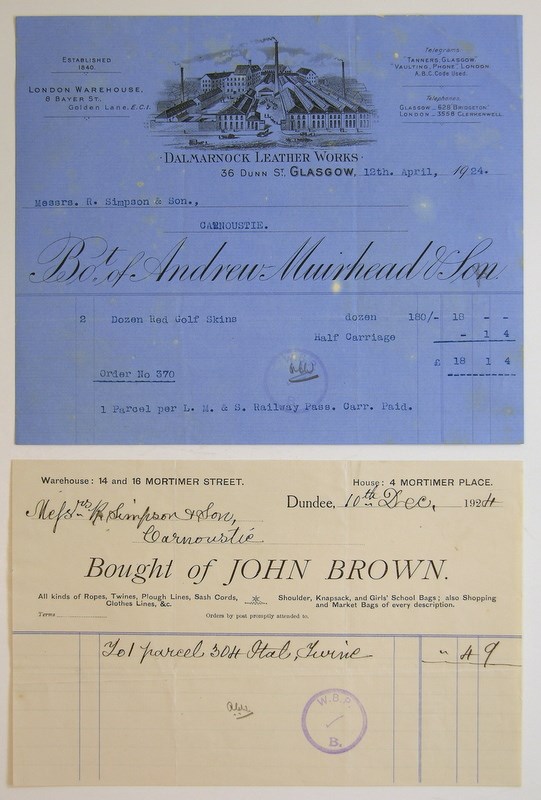 ESTABLISHED
1840.
LONDON WAREHOUSE,
8 BAYER ST.,
Golden Lane, E.C.1.
Telegrams
TANNERS, GLASGOW
"VAULTING, PHONE" LONDON
A.B.C. Code Used.
Telephones
GLASGOW – 628 "BRIDGETON"
LONDON – 3558 CLERKENWELL.
· DALMARNOCK LEATHER WORKS ·
36 DUNN ST. GLASGOW, 12th. April, 1924.
Messrs. R. Simpson & Son.,
CARNOUSTIE.
Bot. of Andrew Muirhead & Son.
2 Dozen Red Golf Skins dozen 180/- 18 - -
Half Carriage - 1 4
£ 18 1 4
Order No 370
1 Parcel per L. M. & S. Railway Pass. Carr. Paid.
Warehouse: 14 and 16 MORTIMER STREET. House: 4 MORTIMER PLACE.
Dundee, 10th Dec. 1924
Messrs R. Simpson & Son,
Carnoustie
Bought of JOHN BROWN.
All kinds of Ropes, Twines, Plough Lines, Sash Cords,
Clothes Lines, &c.
Shoulder, Knapsack, and Girls' School Bags; also Shopping
and Market Bags of every description.
Terms
Orders by post promptly attended to.
To 1 parcel 304 Ital. Twine " 4 9
W.B.P.
B.